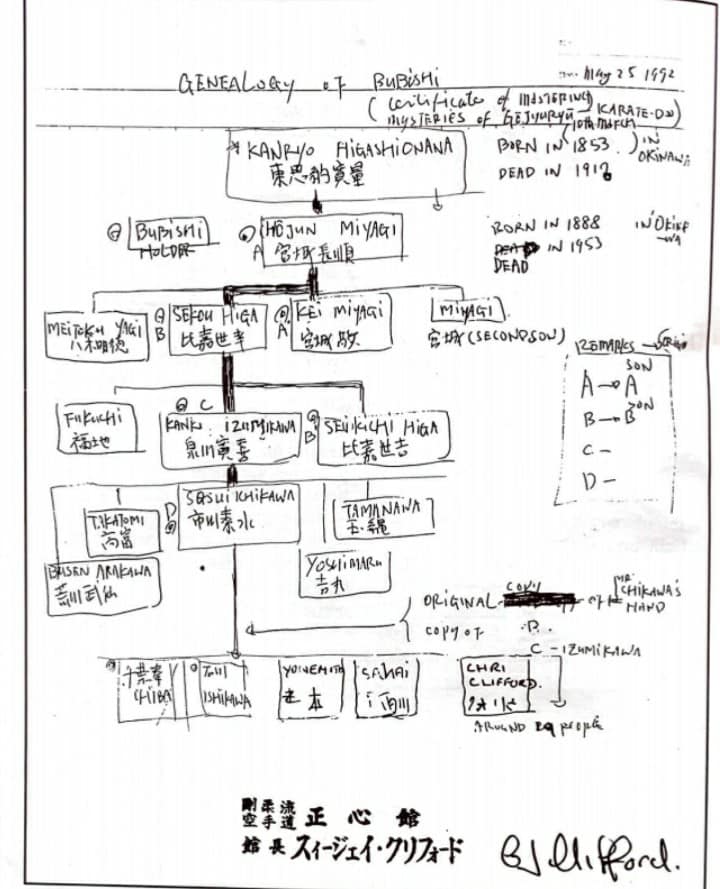 May 25 1992
GENEALOGY OF BUBISHI
(Certificate of MASTERING
MYSTERIES OF GOJYURYU KARATE-DO)
KANRYO HIGASHIONANA
BORN IN 1853
IN OKINAWA
DEAD IN 191
BUBISHI
HOLDER
HOJUN MIYAGI
A 宮城長順
BORN IN 1888
DEAD IN 1953
DEAD
MEITOKU YAGI
八木明徳
B
SEKOU HIGA
比嘉世幸
A
KEI MIYAGI
宮城敬
MIYAGI
宮城(SECOND SON)
REMARKS
A → A SON
B → B SON
C -
D -
FUKUCHI
福地
C
KANKI IZUMIKAWA
泉川寛喜
B
SEIKICHI HIGA
比嘉世吉
TAKATOMI
高富
D
SOSUI ICHIKAWA
市川素水
TAMANAWA
玉縄
BUSEN ARAKAWA
荒川武仙
YOSHIMARU
吉丸
ORIGINAL COPY OF MR ICHIKAWA'S HAND
COPY OF B
C - IZUMIKAWA
千葉
CHIBA
石川
ISHIKAWA
YONEMOTO
SAKAI
CHRI
CLIFFORD.
AROUND PEOPLE
剛柔流
空手道 正心館
館長 スィージェイ・クリフォード
CJ Clifford.